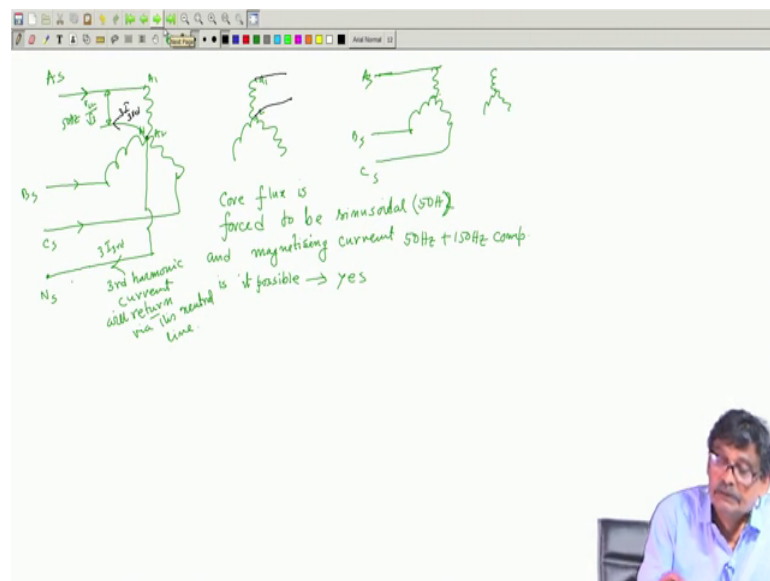 T
Next Page
Arial Normal 12
As
A1
50Hz
3I3rd
N
A2
Bs
Cs
3I3rd
Ns
3rd harmonic
current
will return
via this neutral
line.
A1
Core flux is
forced to be sinusoidal (50H)
and magnetising current 50Hz + 150Hz comp.
is it possible → yes
As
Bs
Cs